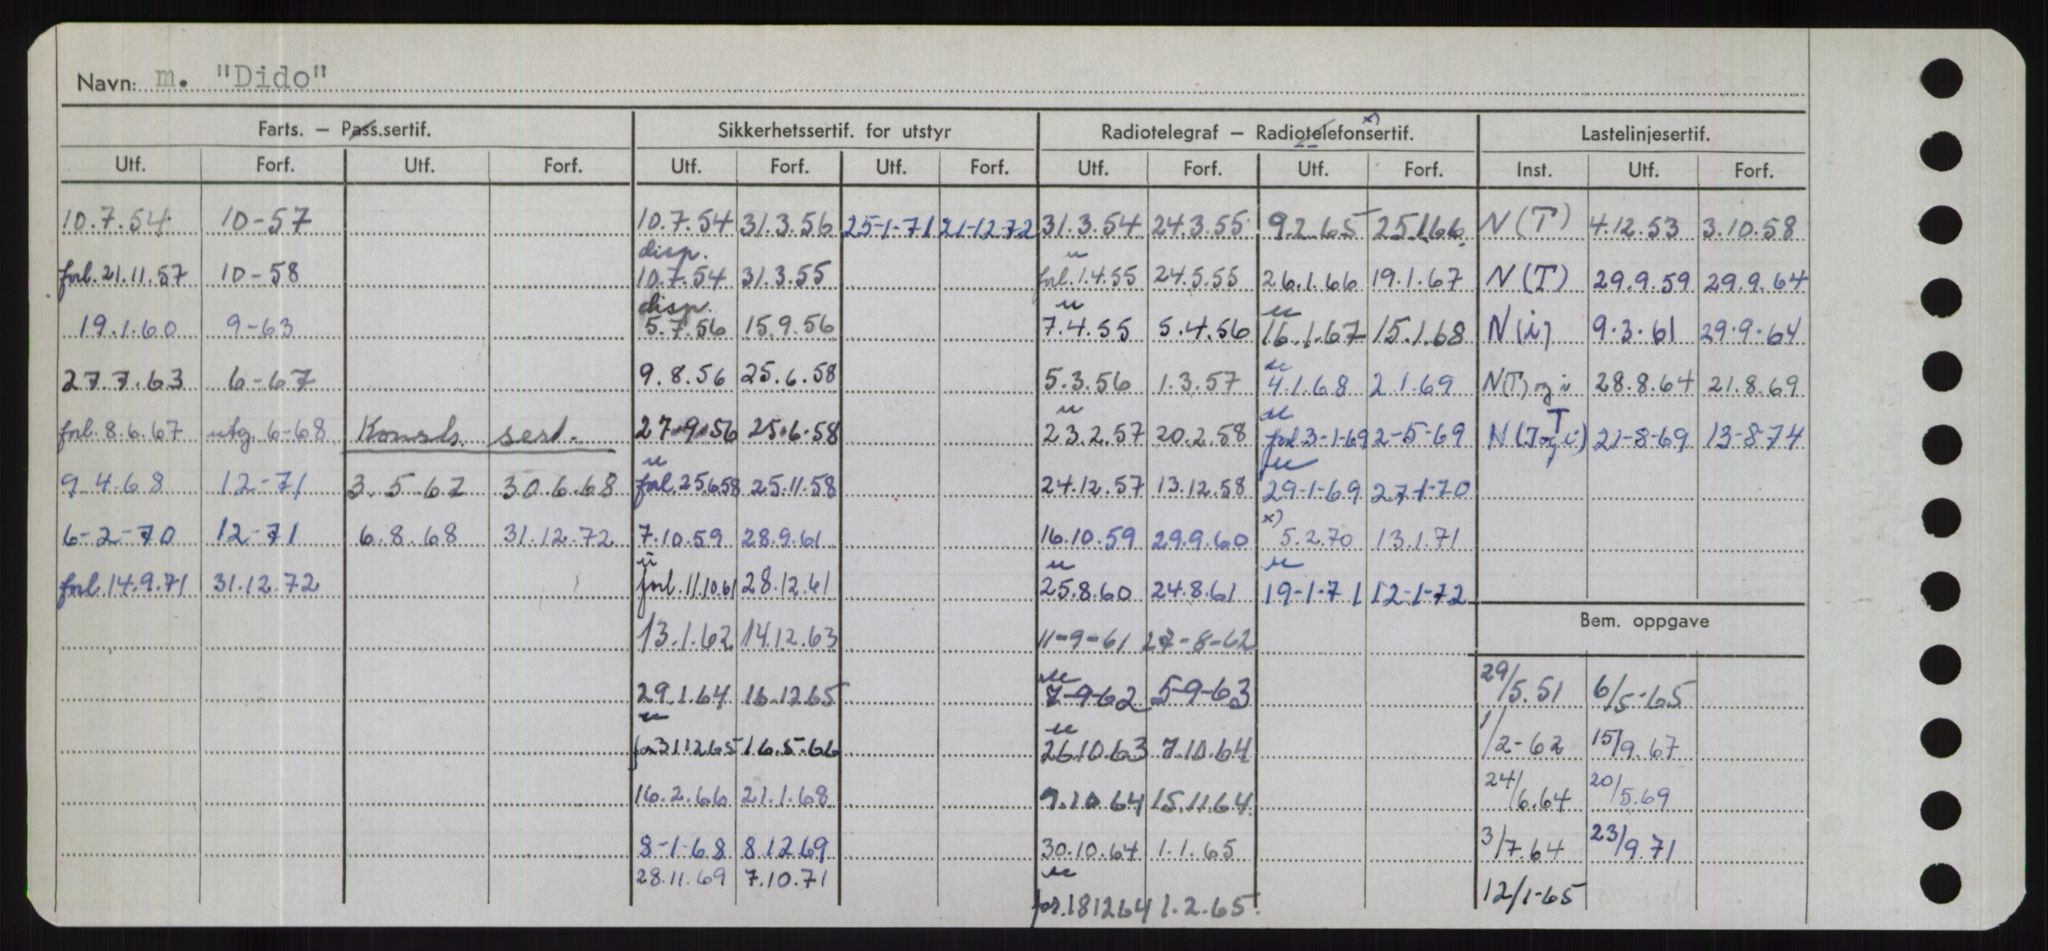 Navn: m. "Dido"
Farts. — Pass.sertif. Sikkerhetssertif. for utstyr Radiotelegraf — Radiotelefonsertif. x) Lastelinjesertif.
Utf. Forf. Utf. Forf. Utf. Forf. Utf. Forf. Utf. Forf. Utf. Forf. Inst. Utf. Forf.
10.7.54 10-57 10.7.54 31.3.56 25-1-71 21-12-72 31.3.54 24.3.55 9.2.65 25.1.66 N(T) 4.12.53 3.10.58
disp. u
forl. 21.11.57 10-58 10.7.54 31.3.55 forl. 1.4.55 24.5.55 26.1.66 19.1.67 N(T) 29.9.59 29.9.64
disp. u u
19.1.60 9-63 5.7.56 15.9.56 7.4.55 5.4.56 16.1.67 15.1.68 N(i) 9.3.61 29.9.64
u
27.7.63 6-67 9.8.56 25.6.58 5.3.56 1.3.57 4.1.68 2.1.69 N(T) og i 28.8.64 21.8.69
u u T
forl. 8.6.67 utg. 6-68 Konsls. sert. 27.9.56 25.6.58 23.2.57 20.2.58 forl 3-1-69 2-5-69 N(T og i) 21-8-69 13-8-74
u u
9.4.68 12-71 3.5.67 30.6.68 forl. 25658 25.11.58 24.12.57 13.12.58 29-1-69 27-1-70
x)
6-2-70 12-71 6.8.68 31.12.72 7.10.59 28.9.61 16.10.59 29.9.60 5.2.70 13.1.71
u u u
forl. 14.9.71 31.12.72 forl. 11.10.61 28.12.61 25.8.60 24.8.61 19-1-71 12-1-72
Bem. oppgave
13.1.62 14.12.63 11-9-61 27-8-62
u
29.1.64 16.12.65 7-9-62 5-9-63 29/5.51 6/5-65
u u
for 311265 16.5.66 26.10.63 7.10.64 1/2-62 15/9.67
16.2.66 21.1.68 9.10.64 15.11.64 24/6.64 20/5.69
8-1-68 8.12.69 30.10.64 1.1.65 3/7.64 23/9.71
u
28.11.69 7.10.71
for. 181264 1.2.65 12/1-65